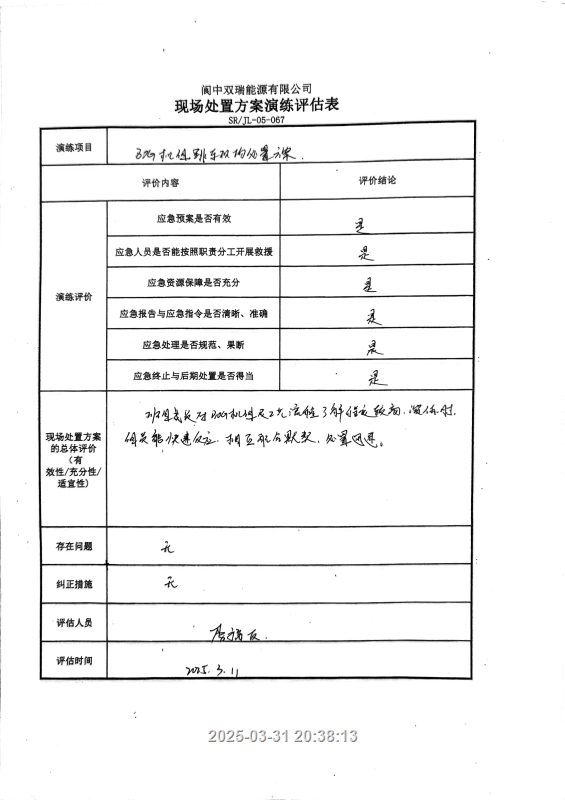 阆中双瑞能源有限公司
现场处置方案演练评估表
SR/JL-05-067
演练项目
BOG机组跳车现场处置方案.
评价内容 评价结论
演练评价
应急预案是否有效 是
应急人员是否能按照职责分工开展救援 是
应急资源保障是否充分 是
应急报告与应急指令是否清晰、准确 是
应急处理是否规范、果断 是
应急终止与后期处置是否得当 是
现场处置方案
的总体评价
(有
效性/充分性/
适宜性)
班组成员对BOG机组及工艺流程了解
组员能快速反应, 相互配合默契, 处置迅速。
存在问题 无
纠正措施 无
评估人员
评估时间 2025.3.11
2025-03-31 20:38:13